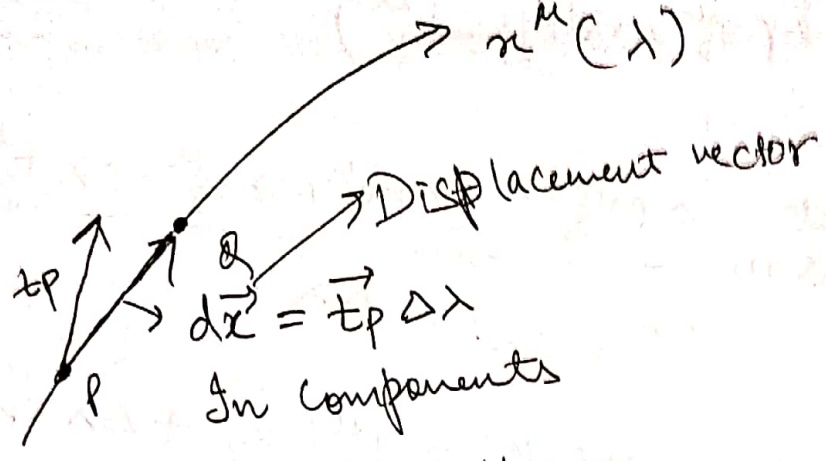 x^μ(λ)
Displacement vector
t_P
Q
d\vec{x} = \vec{t}_P Δλ
P
In components